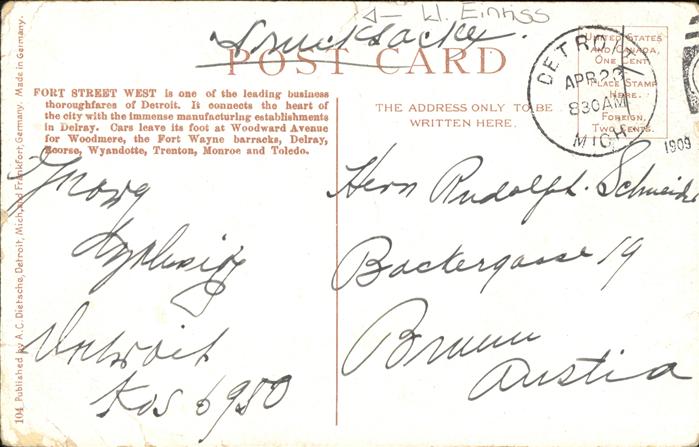 W. Eintiss
Drucksache.
POST CARD
FORT STREET WEST is one of the leading business
thoroughfares of Detroit. It connects the heart of
the city with the immense manufacturing establishments
in Delray. Cars leave its foot at Woodward Avenue
for Woodmere, the Fort Wayne barracks, Delray,
Ecorse, Wyandotte, Trenton, Monroe and Toledo.
THE ADDRESS ONLY TO BE
WRITTEN HERE.
UNITED STATES
AND CANADA,
ONE CENT.
PLACE STAMP
HERE.
FOREIGN,
TWO CENTS.
DETROIT
APR 23
830 AM
MICH
1909
Georg
Detroit
Kos 6950
Herrn Rudolph Schneider
Backergasse 19
Brunn
Austia
104 Published by A. C. Dietsche, Detroit, Mich. and Frankfort, Germany. Made in Germany.